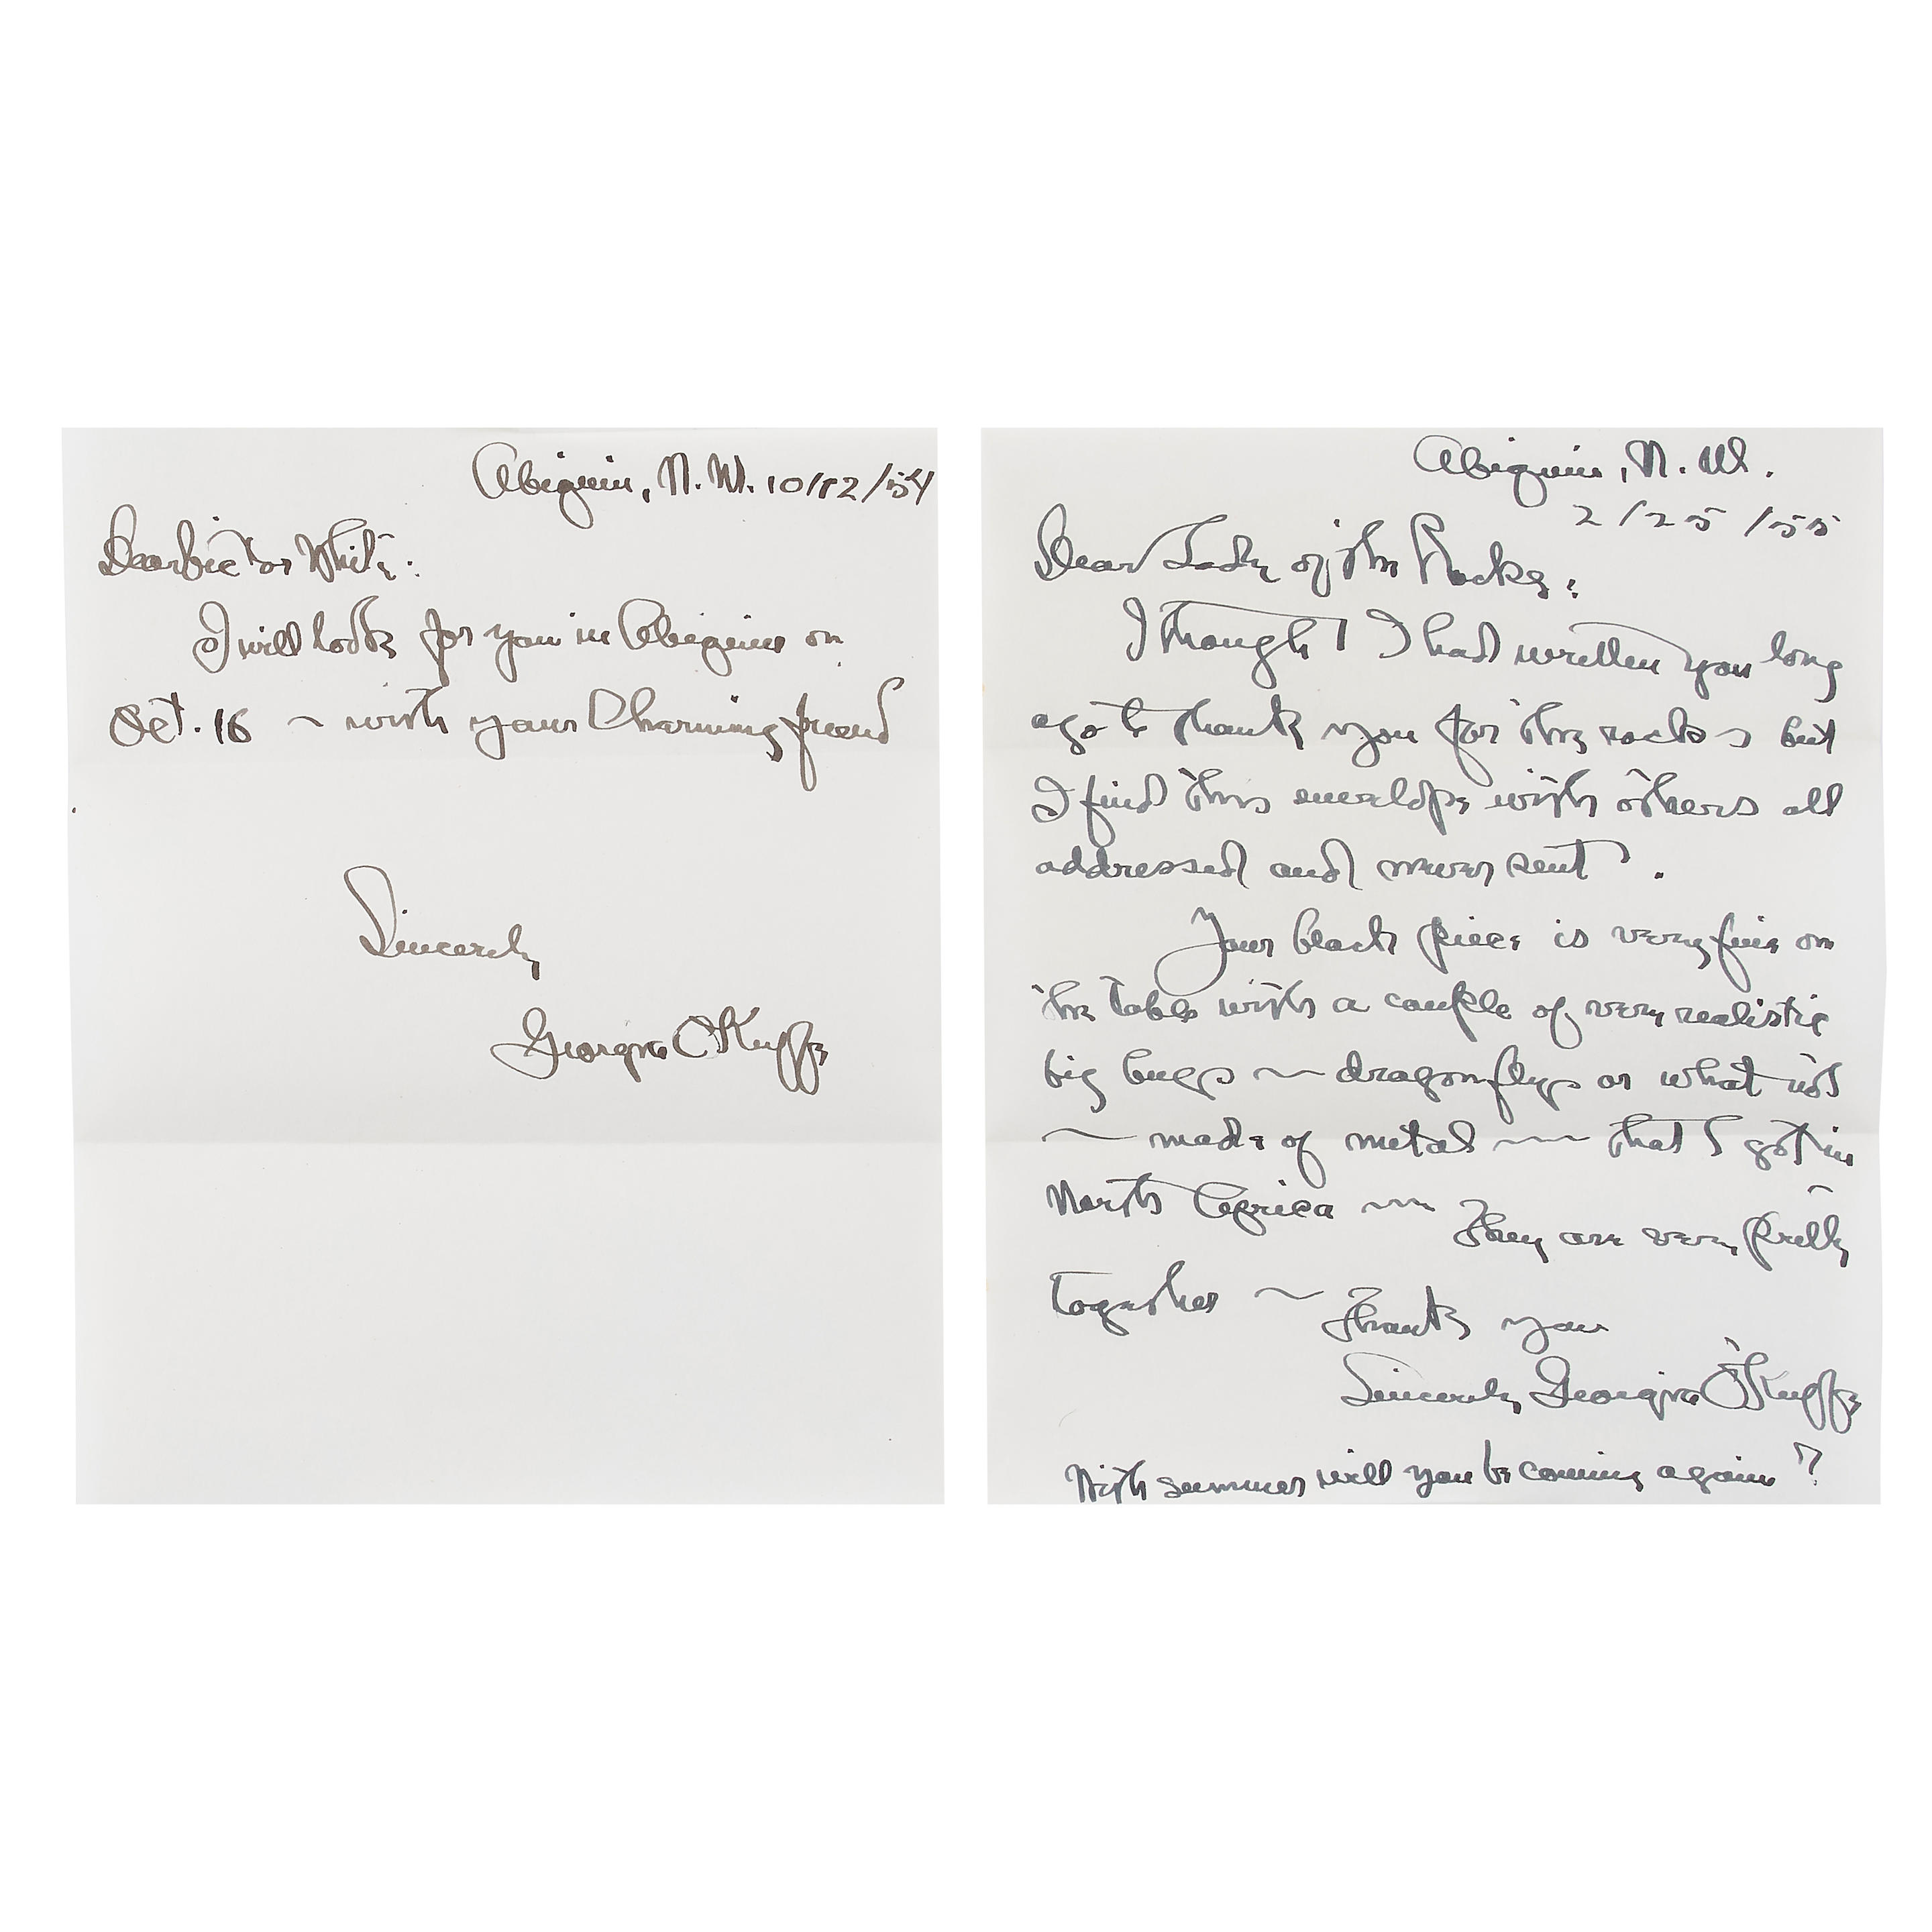 Abiquiu, N. M. 10/12/54
Dear Victor White:
I will look for you in Abiquiu on
Oct. 16 ~ with your charming friend
Sincerely
Georgia O'Keeffe
Abiquiu, N. M.
2/25/55
Dear Lady of the Rocks:
I thought I had written you long
ago to thank you for the rocks but
I find this envelope with others all
addressed and never sent.
Your black piece is very fine on
the table with a couple of very realistic
big bugs ~ dragonflys or what not
~ made of metal ~ that I got in
North Africa ~ They are very pretty
together ~ Thank you
Sincerely Georgia O'Keeffe
summer will you be coming again?